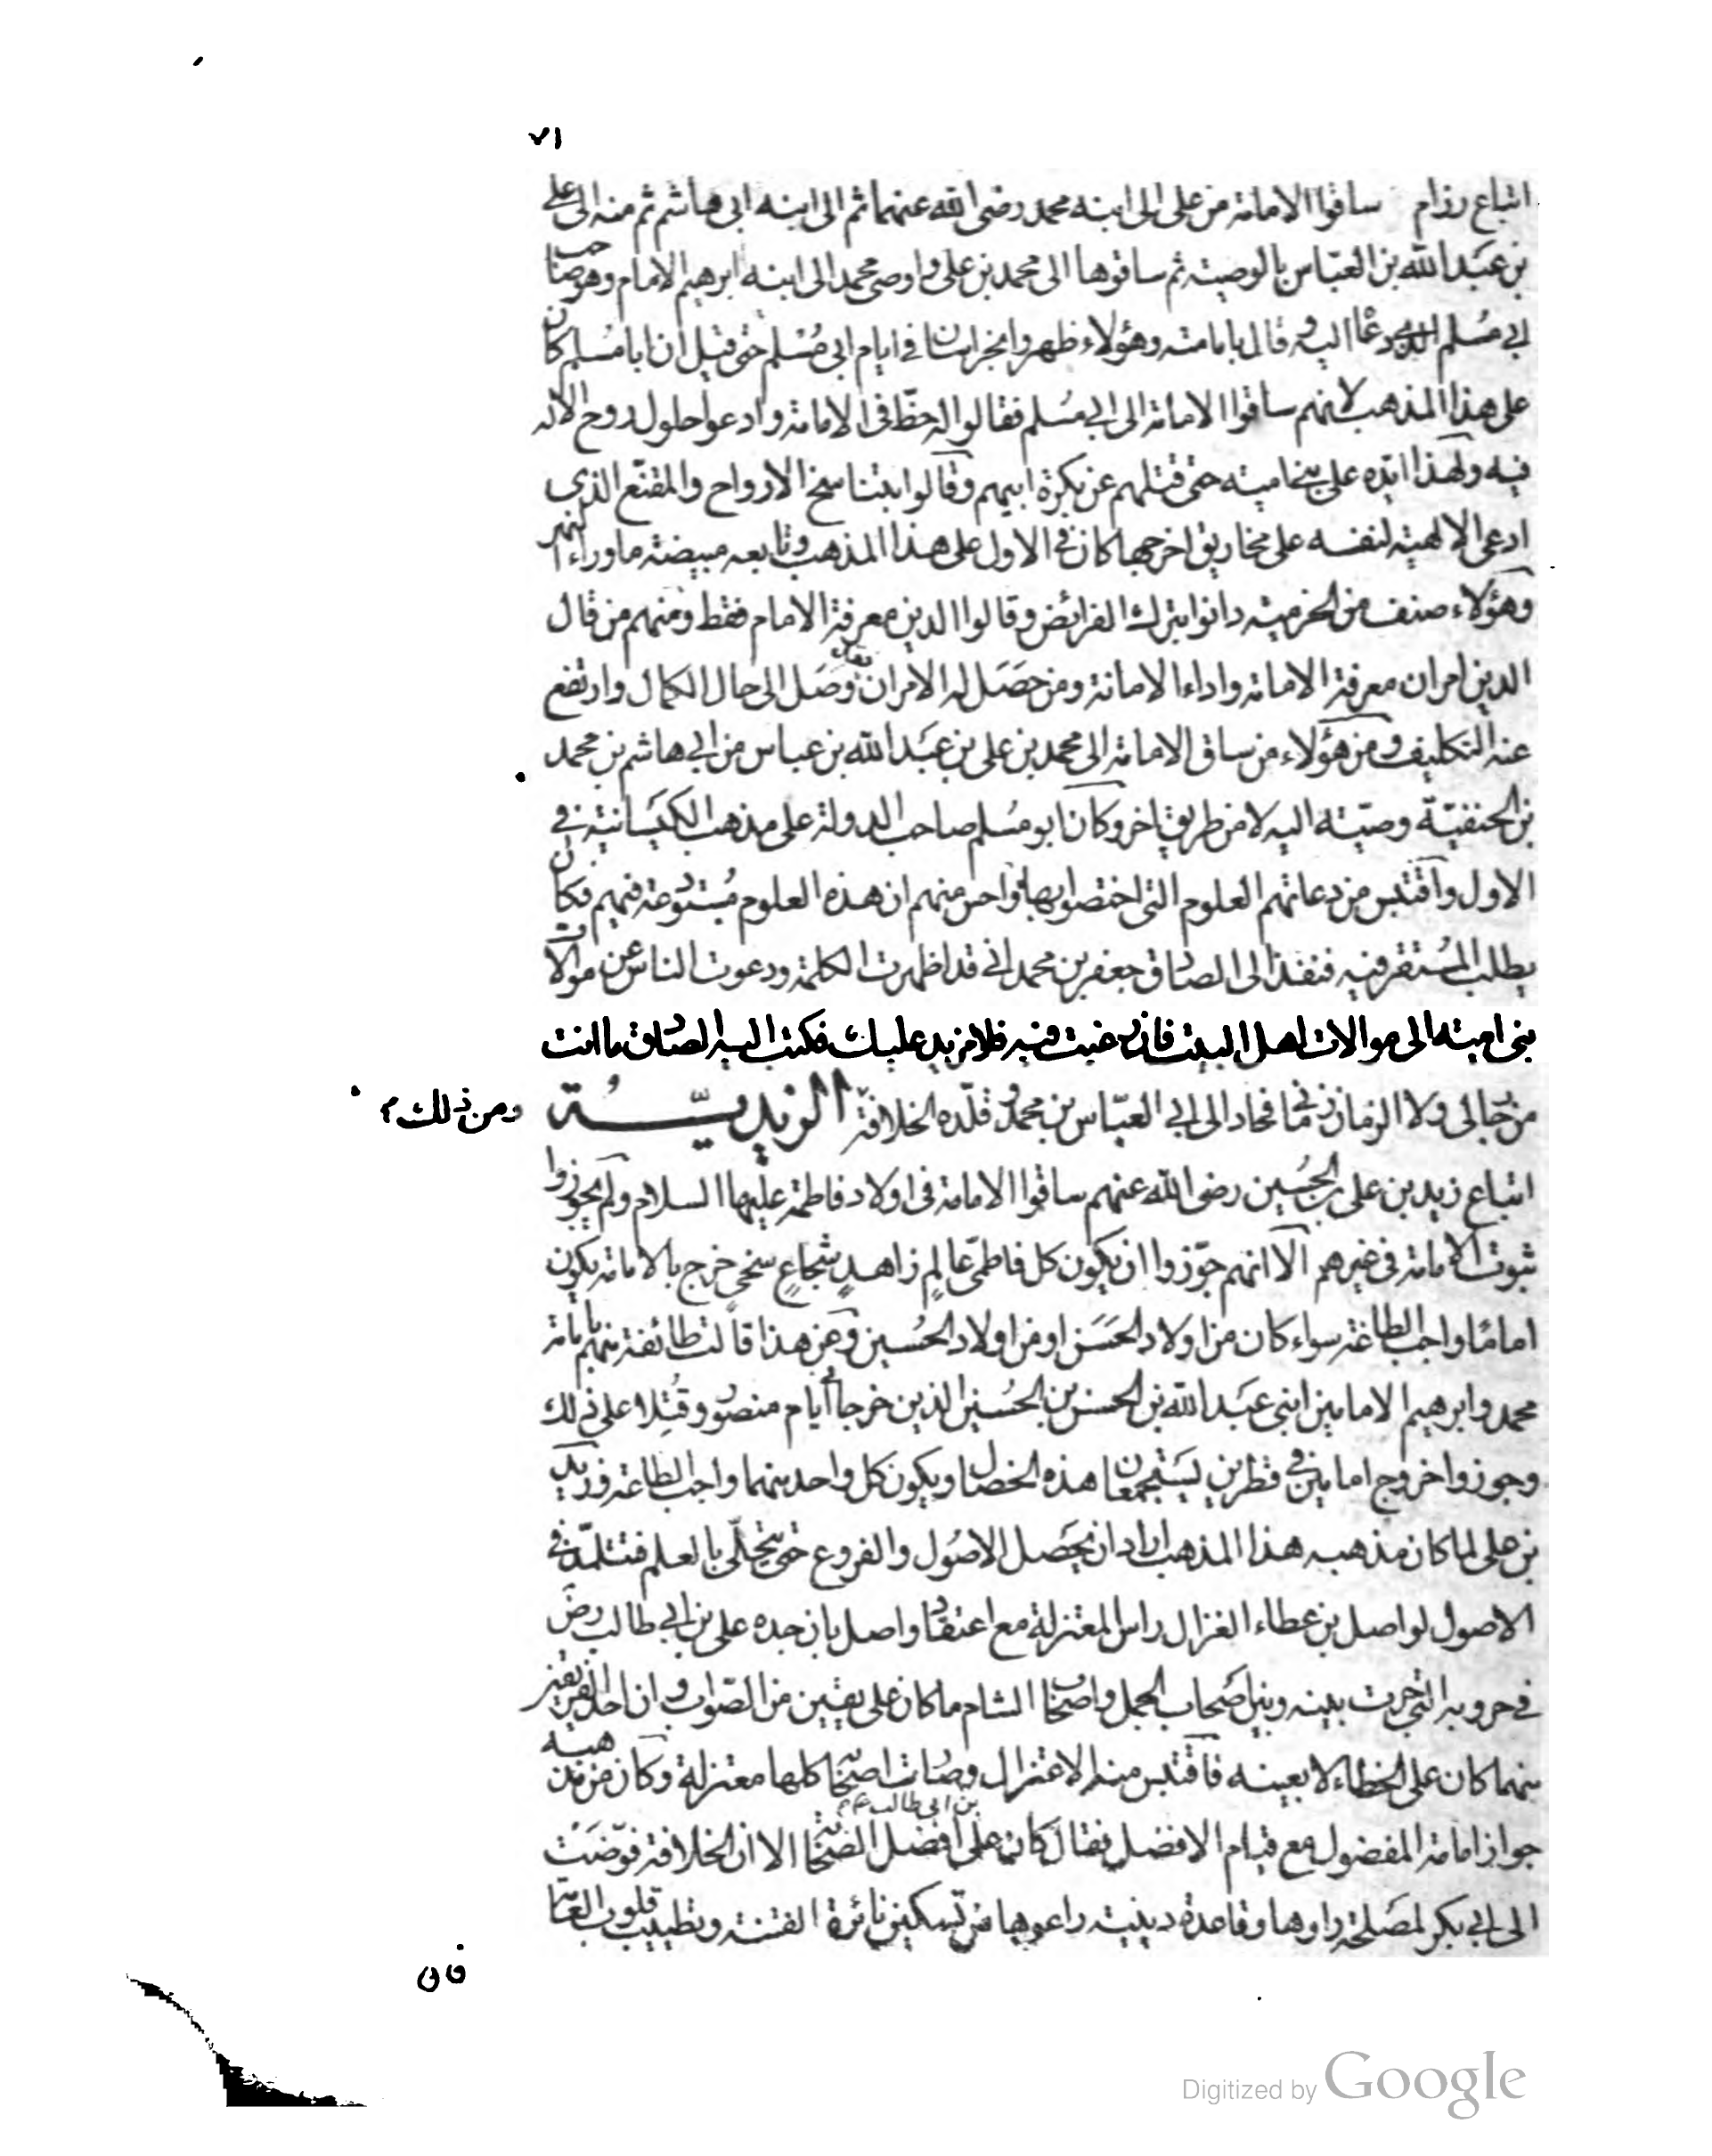 ٧١
اتباع رزام ساقوا الامامة من على الى ابنه محمد رضى الله عنهما ثم الى ابنه ابى هاشم ثم منه الى على
بن عبد الله بن العباس بالوصية ثم ساقوها الى محمد بن على واوصى محمد الى ابنه ابرهيم الامام وهو صاحب
ابى مسلم الذى دعا اليه وقال بامامته وهؤلاء ظهروا بخراسان فى ايام ابى مسلم حتى قيل ان ابا مسلم كان
على هذا المذهب لانهم ساقوا الامامة الى ابى مسلم فقالوا له حظ فى الامامة وادعوا حلول روح الاله
فيه ولهذا ايده على بنى امية حتى قتلهم عن بكرة ابيهم وقالوا بتناسخ الارواح والمقنع الذى
ادعى الالهية لنفسه على مخاريق اخرجها كان فى الاول على هذا المذهب وتابعه مبيضة ماوراء النهر
وهؤلاء صنف من الخرمية دانوا بترك الفرائض وقالوا الدين معرفة الامام فقط ومنهم من قال
الدين امران معرفة الامامة واداء الامانة ومن حصل له الامران فقد وصل الى حال الكمال وارتفع
عنه التكليف ومن هؤلاء من ساق الامامة الى محمد بن على بن عبد الله بن عباس من ابى هاشم بن محمد
بن الحنفية وصية اليه لا من طريق اخر وكان ابو مسلم صاحب الدولة على مذهب الكيسانية فى
الاول واقتبس من دعاتهم العلوم التى اختصوا بها واحس منهم ان هذه العلوم مستودعة فيهم فكان
يطلب المستقر فيه فنفذ الى الصادق جعفر بن محمد انى قد اظهرت الكلمة ودعوت الناس عن موالات
بنى امية الى موالات اهل البيت فان رغبت فيه فلا مزيد عليك فكتب اليه الصادق ما انت
من رجالى ولا الزمان زمانى فحاد الى ابى العباس بن محمد وقلده الخلافة الزيدية
ومن ذلك م
اتباع زيد بن على بن الحسين رضى الله عنهم ساقوا الامامة فى اولاد فاطمة عليها السلام ولم يجوزوا
ثبوت الامامة فى غيرهم الا انهم جوزوا ان يكون كل فاطمى عالم زاهد شجاع سخى خرج بالامامة يكون
اماما واجب الطاعة سواء كان من اولاد الحسن او من اولاد الحسين وعن هذا قالت طائفة منهم بامامة
محمد وابرهيم الامامين ابنى عبد الله بن الحسن بن الحسين الذين خرجا فى ايام منصور وقتلا على ذلك
وجوزوا خروج امامين فى قطرين يستجمعان هذه الخصال ويكون كل واحد منهما واجب الطاعة وزيد
بن على لما كان مذهبه هذا المذهب اراد ان يحصل الاصول والفروع حتى يتحلى بالعلم فتلمذ فى
الاصول لواصل بن عطاء الغزال راس المعتزلة مع اعتقاد واصل بان جده على بن ابى طالب رض
فى حروبه التى جرت بينه وبين اصحاب الجمل واصحاب الشام ما كان على يقين من الصواب وان احد الفريقين
منهما كان على الخطاء لا بعينه فاقتبس منه الاعتزال وصارت اصحابه كلها معتزلة وكان من مذهبه
جواز امامة المفضول مع قيام الافضل فقال كان على بن ابى طالب افضل الصحابة الا ان الخلافة فوضت
الى ابى بكر لمصلحة راوها وقاعدة دينية راعوها من تسكين نائرة الفتنة وتطييب قلوب العامة
فان
Digitized by Google